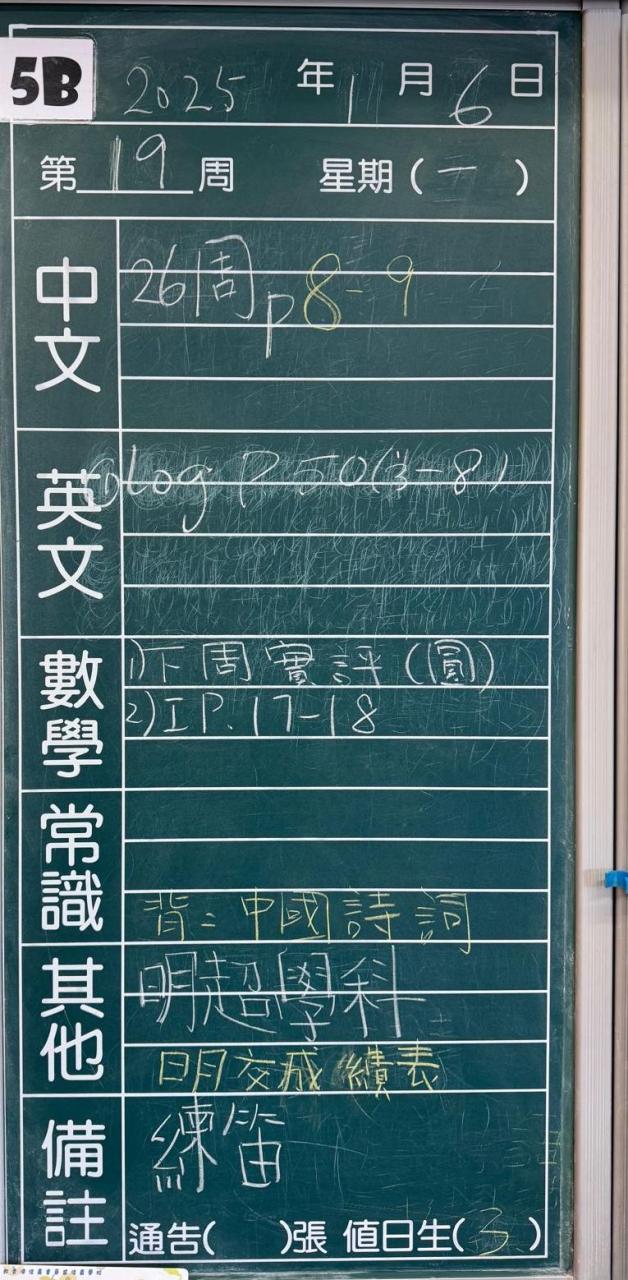 5B 2025年1月6日
第19周 星期(一)
中文
26周 p8-9
英文
Log P 50(3-8)
數學
1)下周實評(圓)
2)I P.17-18
常識
背:中國詩詞
其他
明超學科
明交成績表
備註
練笛
通告( )張 值日生(3)